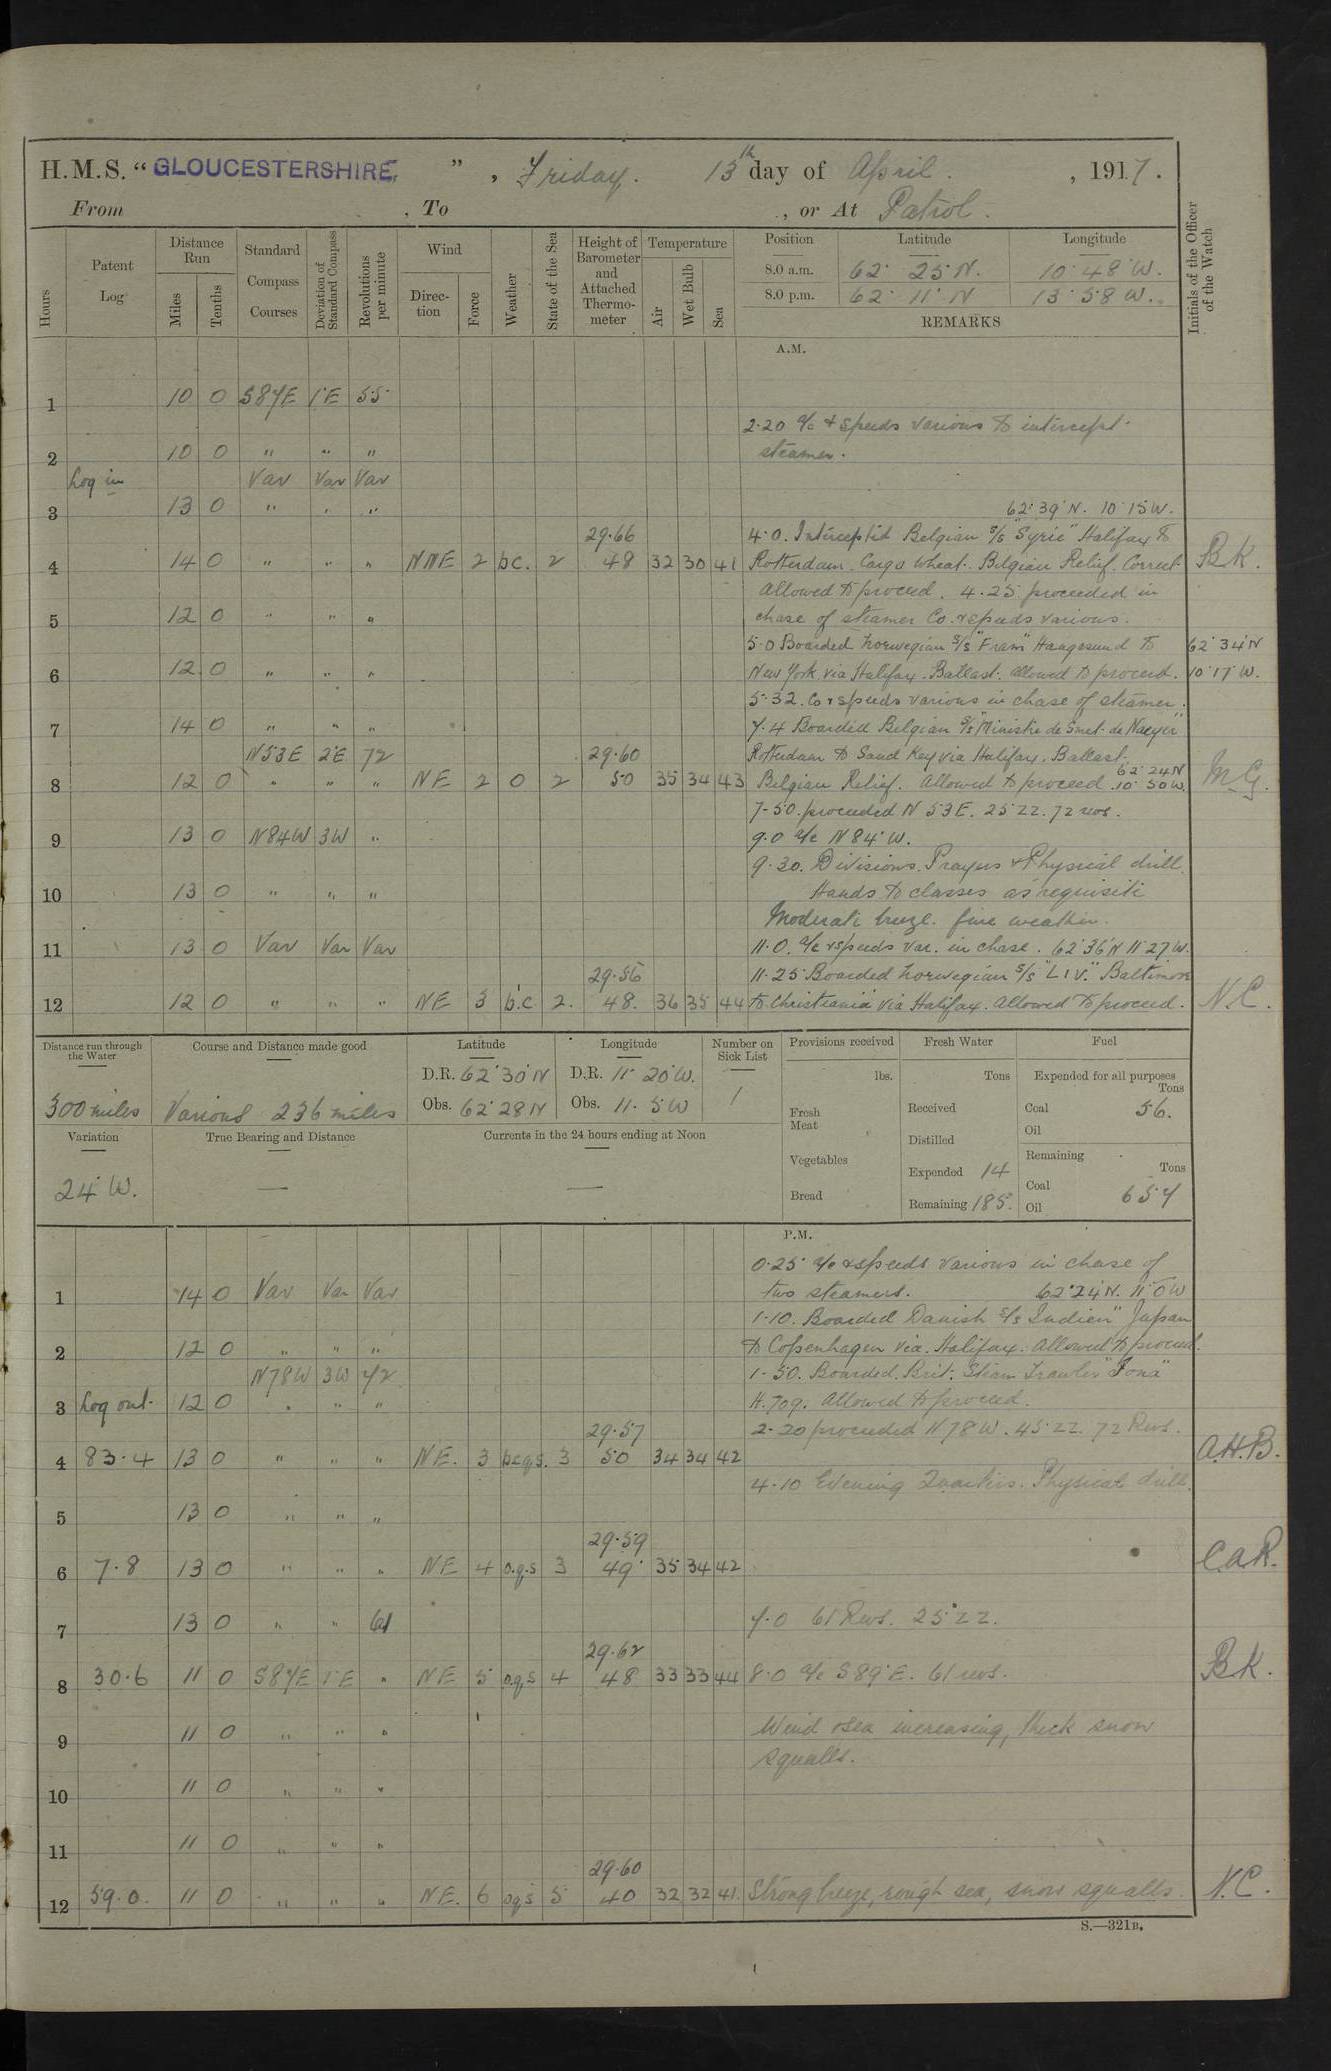 H.M.S. "GLOUCESTERSHIRE," Friday. 13th day of April. , 1917.
From , To , or At Patrol.
Hours Patent Log Distance Run Miles Tenths Standard Compass Courses Deviation of Standard Compass Revolutions per minute Wind Direction Force Weather State of the Sea Height of Barometer and Attached Thermometer Temperature Air Wet Bulb Sea Position Latitude Longitude Initials of the Officer of the Watch
8.0 a.m. 62° 25' N. 10° 48' W.
8.0 p.m. 62° 11' N 13° 58' W.
REMARKS
A.M.
1 10 0 S87E 1°E 55
2.20 a/c & speeds various to intercept
2 10 0 " " " steamer.
Log in Var Var Var
3 13 0 " " " 62° 39' N. 10° 15 W.
29.66 4.0. Intercepted Belgian S/S "Syrie" Halifax to
4 14 0 " " " NNE 2 bc. 2 48 32 30 41 Rotterdam. Cargo wheat. Belgian Relief. Correct B.K.
allowed to proceed. 4.25 proceeded in
5 12 0 " " " chase of steamer Co. & speeds various.
5.0 Boarded Norwegian S/S "Fram" Haugesund to 62° 34' N
6 12 0 " " " New York via Halifax. Ballast. Allowed to proceed. 10° 17' W.
5.32. Co & speeds various in chase of steamer.
7 14 0 " " " 7.4 Boarded Belgian S/S "Ministre de Smet de Naeyer"
N53E 2°E 72 29.60 Rotterdam to Sand Key via Halifax. Ballast.
8 12 0 " " " NE 2 0 2 50 35 34 43 Belgian Relief. Allowed to proceed 62° 24' N 10° 30' W. M.G.
7-50. proceeded N 53 E. 25° ZZ. 72 revs.
9 13 0 N84W 3W " 9.0 a/c N 84° W.
9.30. Divisions. Prayers & Physical drill.
10 13 0 " " " Hands to classes as requisite
Moderate breeze. fine weather.
11 13 0 Var Var Var 11.0. a/c & speeds var. in chase. 62° 36' N 11° 27' W.
29.56 11.25 Boarded Norwegian S/S "LIV." Baltimore
12 12 0 " " " NE 3 b.c 2. 48. 36 35 44 to Christiania via Halifax. Allowed to proceed. N.C.
Distance run through the Water Course and Distance made good Latitude Longitude Number on Sick List Provisions received Fresh Water Fuel
D.R. 62° 30' N D.R. 11° 20' W. lbs. Tons Expended for all purposes Tons
300 miles Various 236 miles Obs. 62° 28 N Obs. 11. 5 W 1 Fresh Meat Received Coal 56.
Oil
Variation True Bearing and Distance Currents in the 24 hours ending at Noon Distilled
Vegetables Remaining Tons
24° W. — — Expended 14 Coal 657
Bread Remaining 185. Oil
P.M.
0.25 a/c & speeds various in chase of
1 14 0 Var Var Var two steamers. 62° 24' N. 11° 0 W
1.10. Boarded Danish S/S "Indien" Japan
2 12 0 " " " to Copenhagen via Halifax. Allowed to proceed.
N78W 3W 72 1.50. Boarded Brit. Steam Trawler "Iona"
3 Log out. 12 0 " " " H.709. Allowed to proceed.
29.57 2.20 proceeded N 78 W. 45° ZZ. 72 Revs.
4 83.4 13 0 " " " NE. 3 bcqs. 3 50 34 34 42 A.H.B.
4.10 Evening Quarters. Physical drill.
5 13 0 " " "
29.59
6 7.8 13 0 " " " NE 4 o.q.s 3 49 35 34 42 C.a.R.
7 13 0 " " 61 7.0 61 Revs. 25° ZZ.
29.62
8 30.6 11 0 S87E 1°E " NE 5 o.q.s 4 48 33 33 44 8.0 a/c S 89° E. 61 revs. B.K.
9 11 0 " " " Wind & sea increasing, thick snow
squalls.
10 11 0 " " "
11 11 0 " " "
29.60
12 59.0. 11 0 " " " NE. 6 oqs 5 40 32 32 41. Strong breeze, rough sea, snow squalls. N.C.
S.—321B.